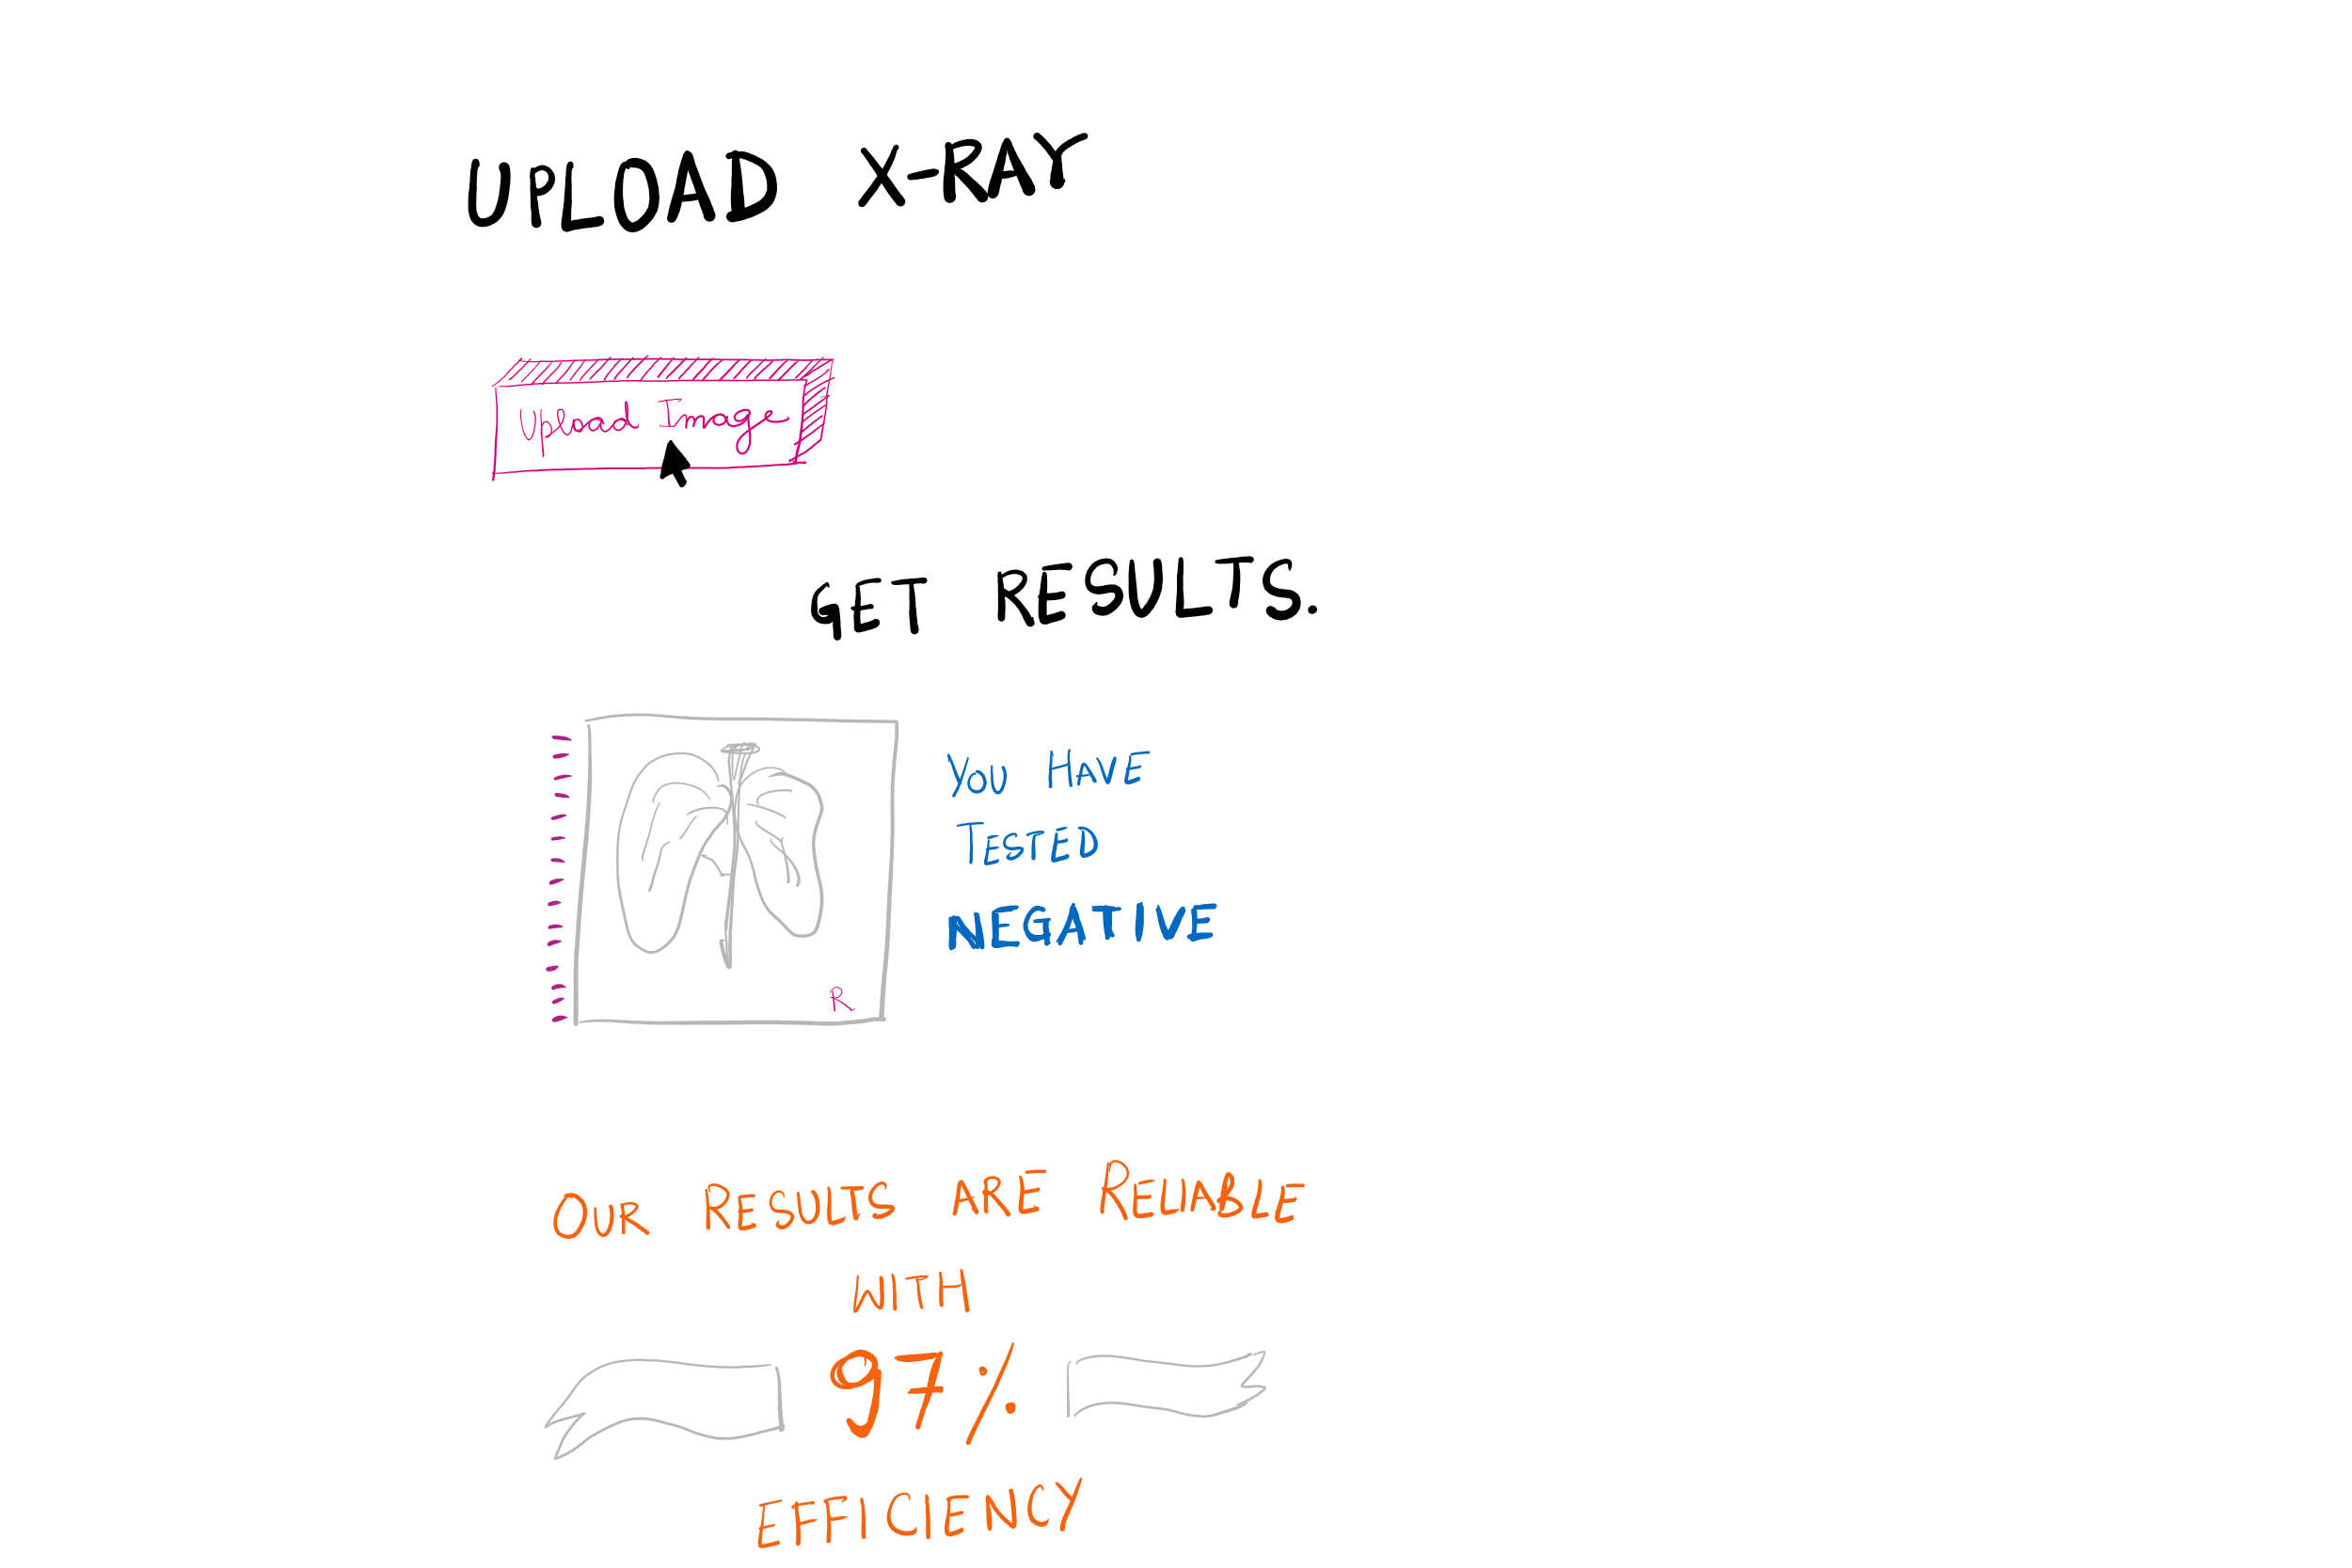 UPLOAD X-RAY
Upload Image
GET RESULTS.
YOU HAVE
TESTED
NEGATIVE
R.
OUR RESULTS ARE RELIABLE
WITH
97%
EFFICIENCY